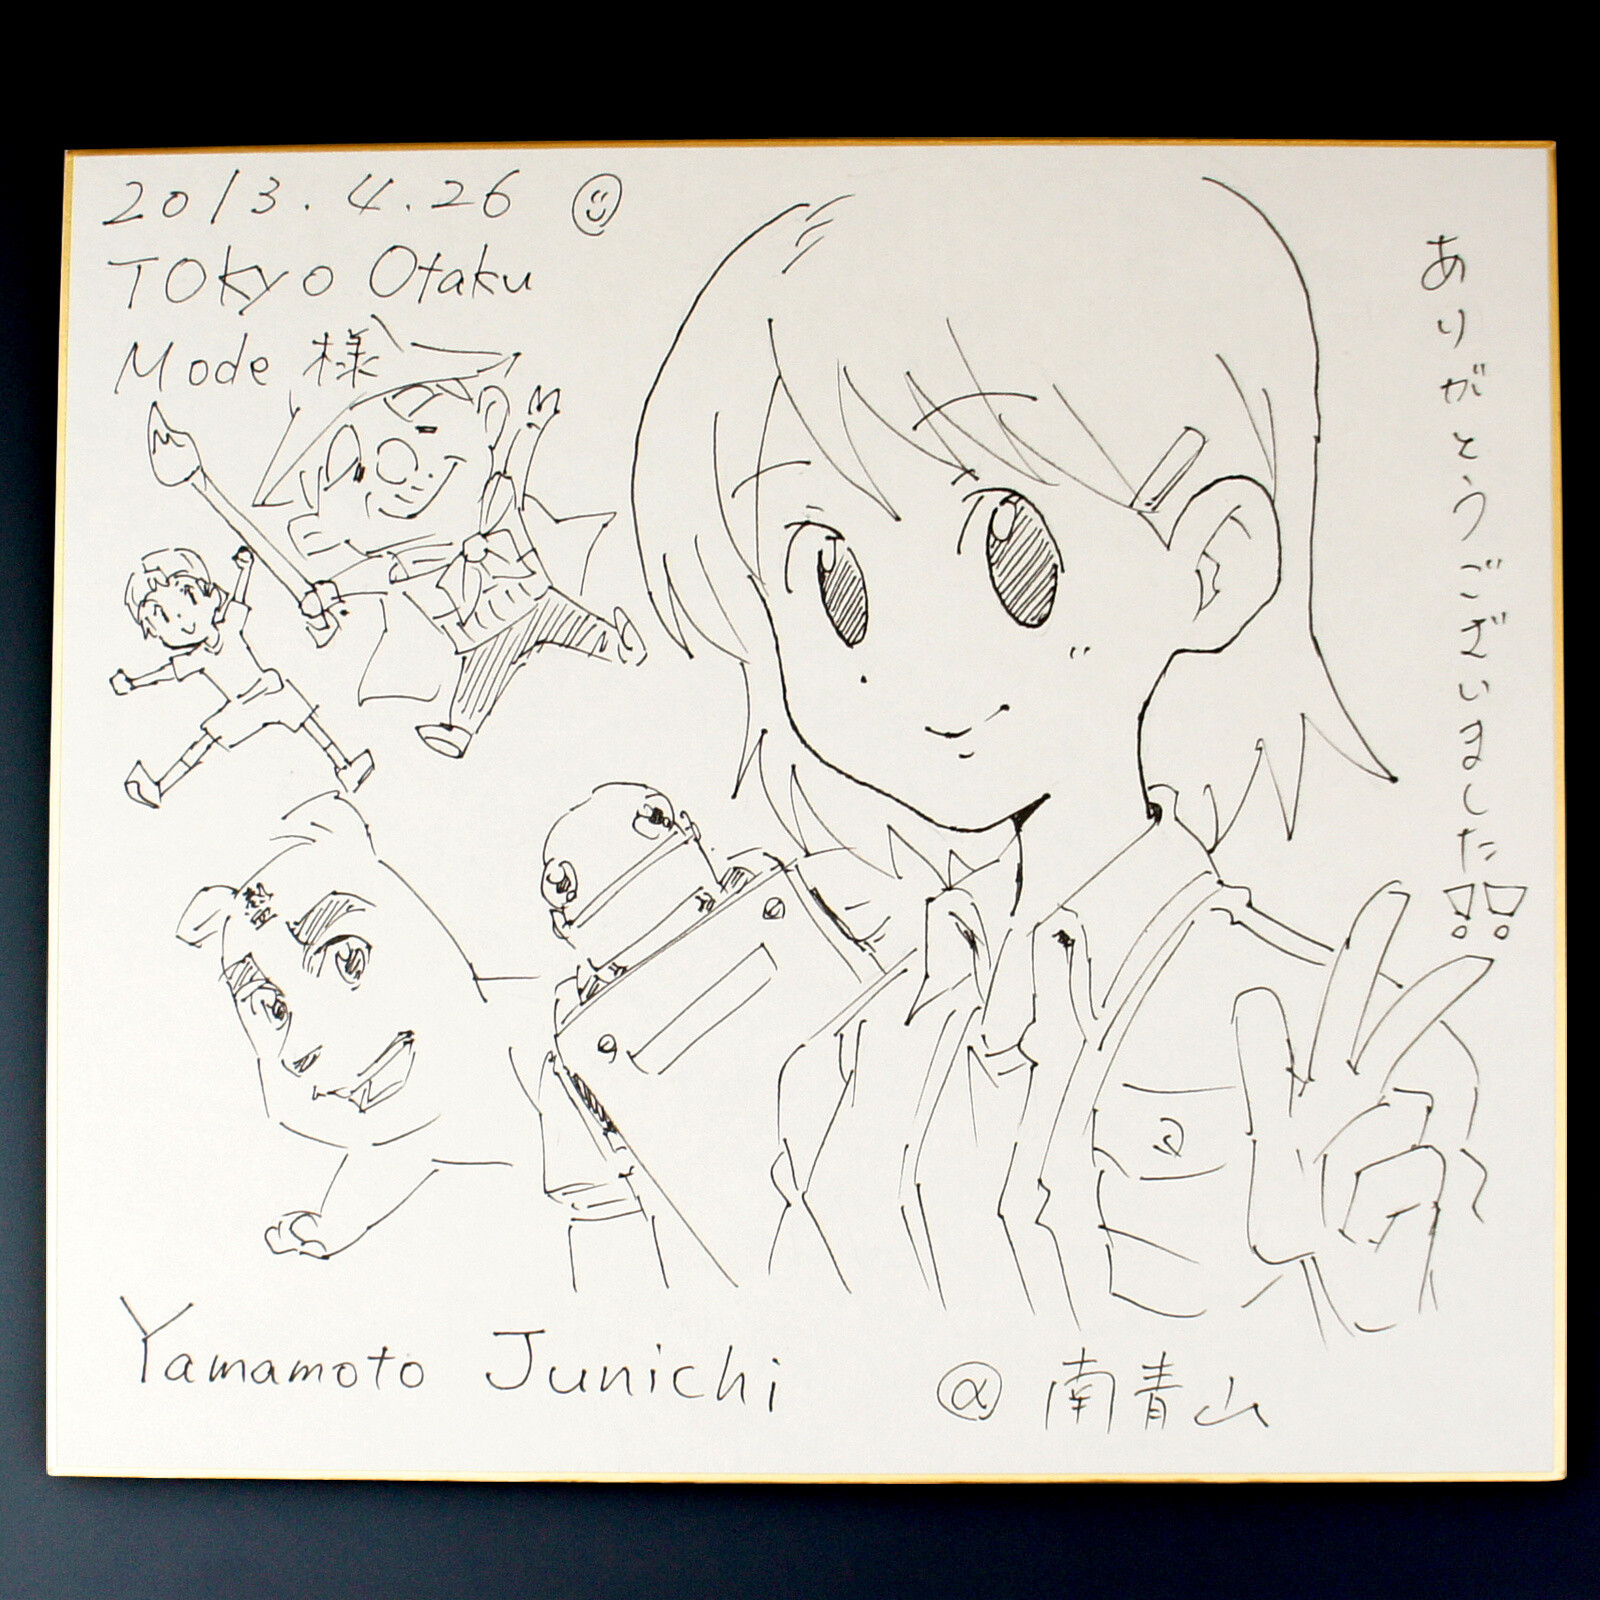 2013.4.26
TOkyo Otaku
Mode 様
ありがとうございました!!
Yamamoto Junichi
@ 南青山